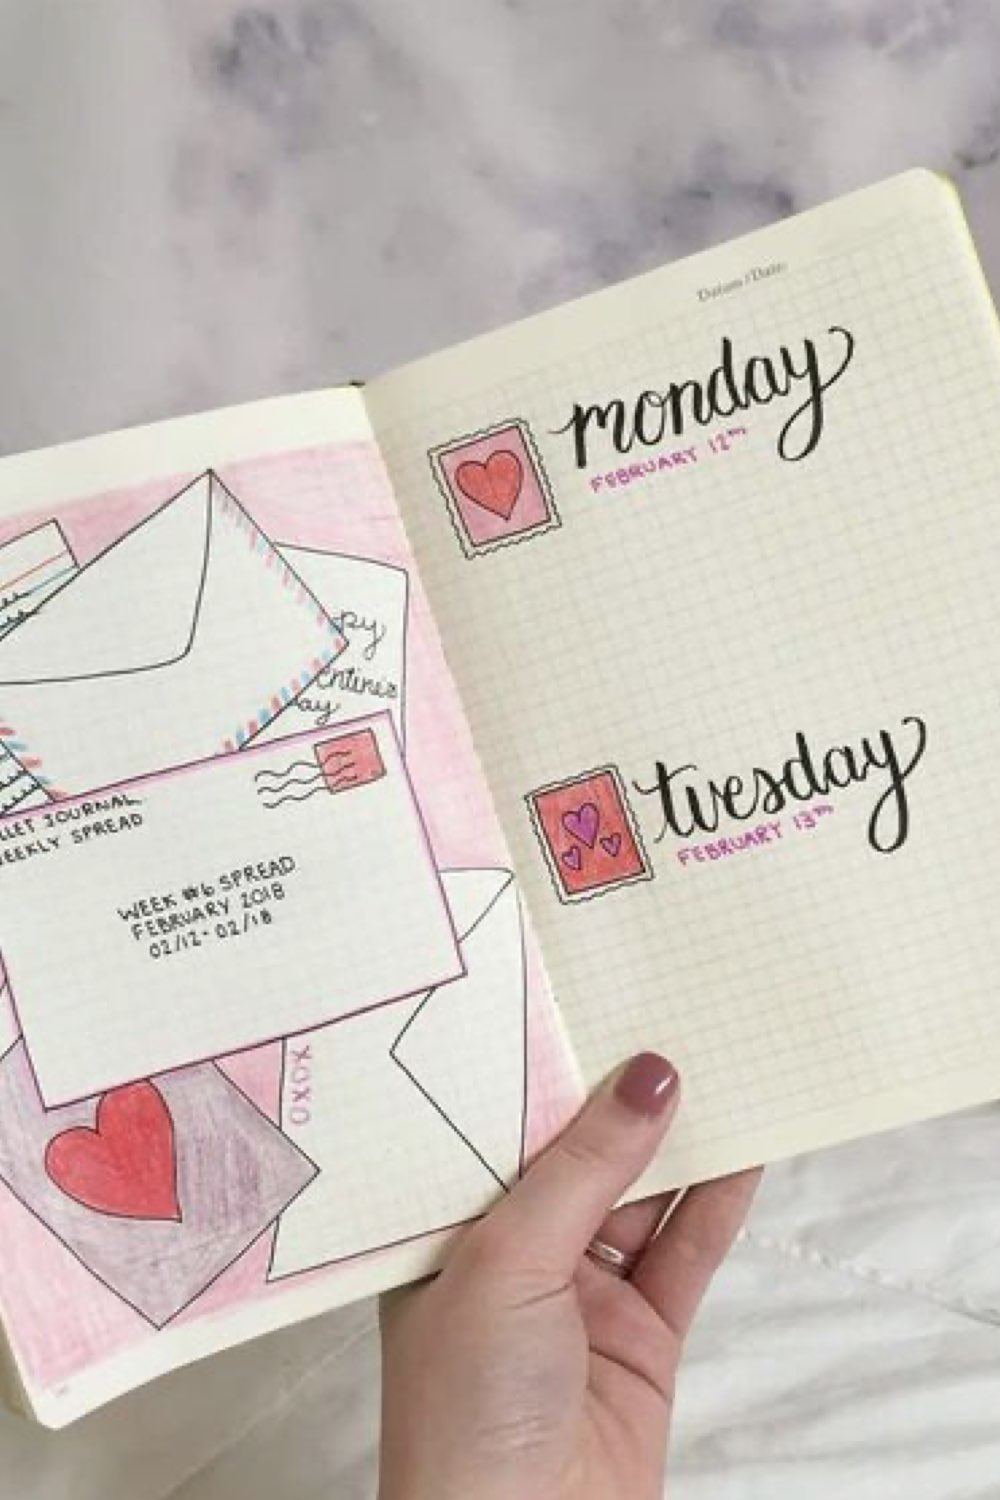 py
entine's
ay
LLET JOURNAL
WEEKLY SPREAD
WEEK #6 SPREAD
FEBRUARY 2018
02/12 - 02/18
XOXO
Datum / Date:
monday
FEBRUARY 12TH
tuesday
FEBRUARY 13TH